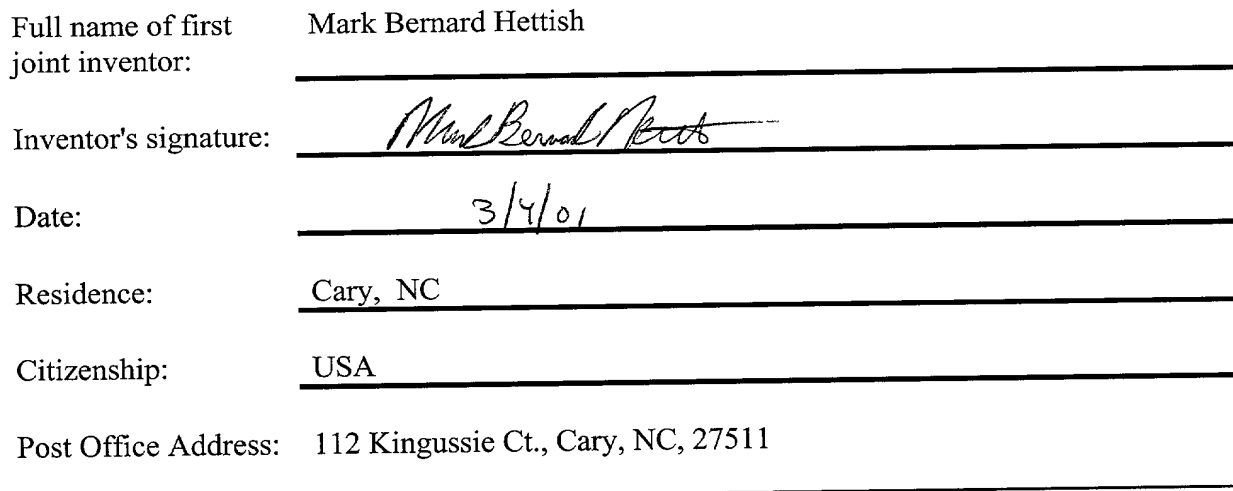 Full name of first Mark Bernard Hettish
joint inventor:
Inventor's signature: Mark Bernard Hettish
Date: 3/4/01
Residence: Cary, NC
Citizenship: USA
Post Office Address: 112 Kingussie Ct., Cary, NC, 27511